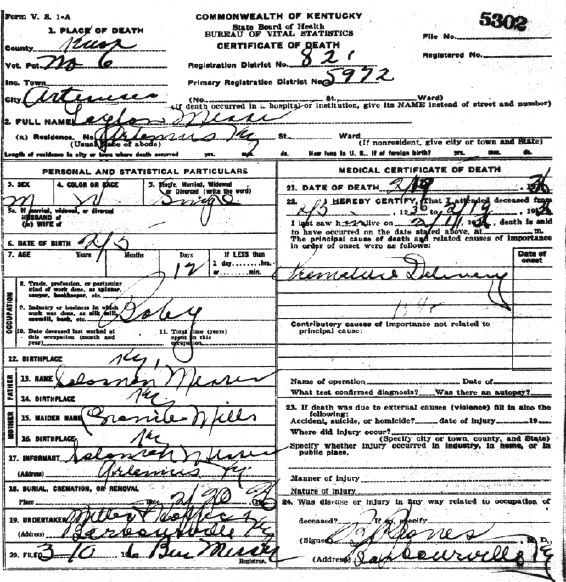 Form V. S. 1-A
COMMONWEALTH OF KENTUCKY
State Board of Health
BUREAU OF VITAL STATISTICS
CERTIFICATE OF DEATH
File No. 5302
Registered No.
1. PLACE OF DEATH
County Knox
Vot. Pct. No 6
Registration District No. 821
Inc. Town
Primary Registration District No. 5972
City Artemus (No. St. Ward)
(If death occurred in a hospital or institution, give its NAME instead of street and number)
2. FULL NAME
(a) Residence. No. Artemus Ky St. Ward
(Usual place of abode) (If nonresident, give city or town and State)
Length of residence in city or town where death occurred yrs. mos. ds. How long in U. S., if of foreign birth? yrs. mos. ds.
PERSONAL AND STATISTICAL PARTICULARS
3. SEX M
4. COLOR OR RACE W
5. Single, Married, Widowed or Divorced (write the word) Single
5a. If married, widowed, or divorced
HUSBAND of
(or) WIFE of
6. DATE OF BIRTH 2/5
7. AGE Years Months Days 12 If LESS than
1 day, hrs.
or min.
OCCUPATION
8. Trade, profession, or particular
kind of work done, as spinner,
sawyer, bookkeeper, etc.
9. Industry or business in which
work was done, as silk mill,
sawmill, bank, etc. Baby
10. Date deceased last worked at
this occupation (month and
year)
11. Total time (years)
spent in this
occupation
12. BIRTHPLACE Ky.
FATHER
13. NAME Solomon Messer
14. BIRTHPLACE Ky
MOTHER
15. MAIDEN NAME Mills
16. BIRTHPLACE Ky
17. INFORMANT Solomon Messer
(Address) Artemus Ky.
18. BURIAL, CREMATION, OR REMOVAL
Place Date 2/20 36
19. UNDERTAKER
(Address) Barbourville Ky
20. FILED 3-10
Registrar.
MEDICAL CERTIFICATE OF DEATH
21. DATE OF DEATH 36
22. I HEREBY CERTIFY, That I attended deceased from
2/5 , 1936 to
I last saw him alive on death is said
to have occurred on the date stated above, at m.
The principal cause of death and related causes of importance
in order of onset were as follows:
Date of
onset
Premature Delivery
Contributory causes of importance not related to
principal cause:
Name of operation Date of
What test confirmed diagnosis? Was there an autopsy?
23. If death was due to external causes (violence) fill in also the
following:
Accident, suicide, or homicide? date of injury 19
Where did injury occur?
(Specify city or town, county, and State)
Specify whether injury occurred in industry, in home, or in
public place.
Manner of injury
Nature of injury
24. Was disease or injury in any way related to occupation of
deceased? If so, specify
(Signed) Jones M. D.
(Address) Barbourville Ky